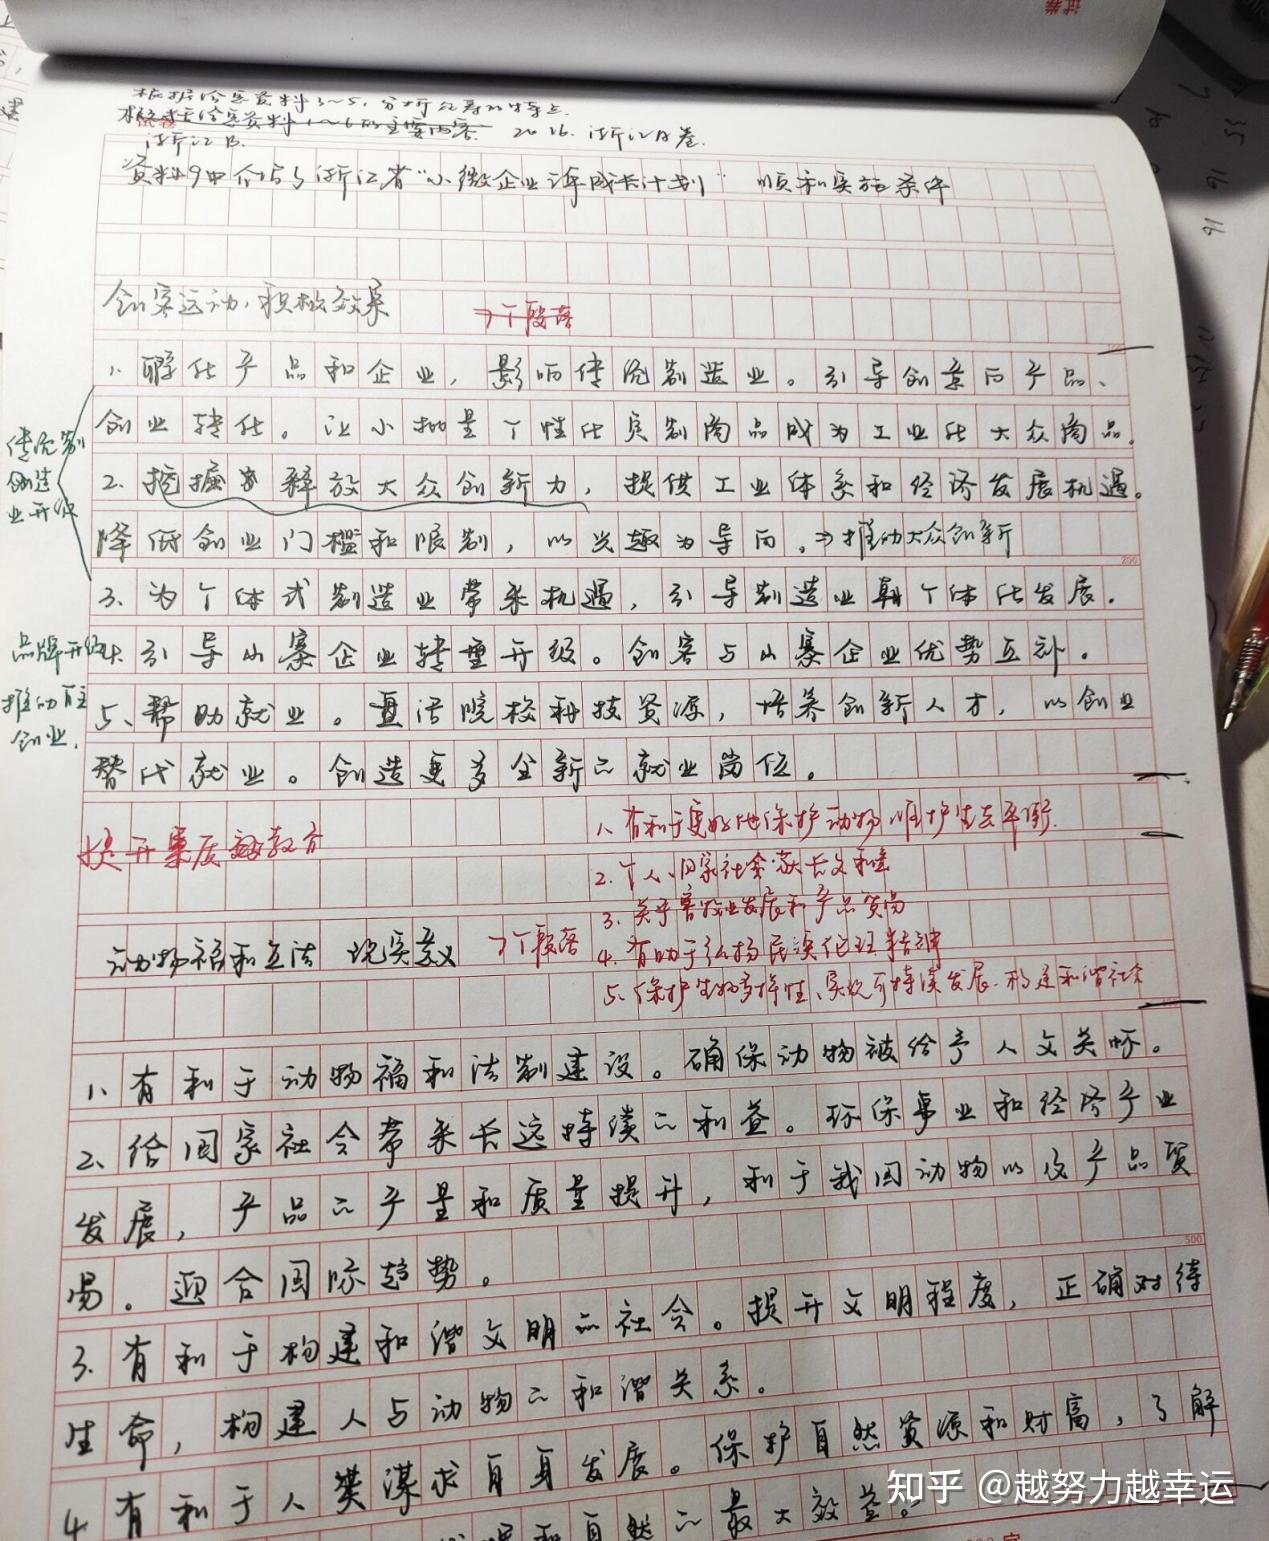 试卷
2016.浙江B卷.
浙江B.
资料9中介绍了浙江省"小微企业三年成长计划" 顺利实施条件
创客运动,积极效果
→个段落
1.孵化产品和企业,影响传统制造业。引导创意向产品、
创业转化。让小批量个性化定制商品成为工业化大众商品。
2.挖掘并释放大众创新力,提供工业体系和经济发展机遇。
降低创业门槛和限制,以兴趣为导向。⇒推动大众创新
3.为个体式制造业带来机遇,引导制造业朝个体化发展.
4.引导山寨企业转型升级。创客与山寨企业优势互补.
5、帮助就业。盘活院校科技资源,培养创新人才,以创业
替代就业。创造更多全新的就业岗位.
传统制
造
业升级
品牌升级
推动自主
创业.
提升素质教育
1.有利于更好地保护动物,维护生态平衡.
2.个人、国家社会
3.关乎畜牧业发展和产品贸易
4.有助于弘扬民族传统精神
5.保护生物多样性、实现可持续发展.构建和谐社会
动物福利立法 现实意义
→个段落
1、有利于动物福利法制建设。确保动物被给予人文关怀。
2、给国家社会带来长远持续的利益。环保事业和经济产业
发展,产品的产量和质量提升,利于我国动物以及产品贸
易。迎合国际趋势。
3.有利于构建和谐文明的社会。提升文明程度,正确对待
生命,构建人与动物的和谐关系。
4.有利于人类谋求自身发展。保护自然资源和财富,了解
和自然的最大效益。
知乎 @越努力越幸运